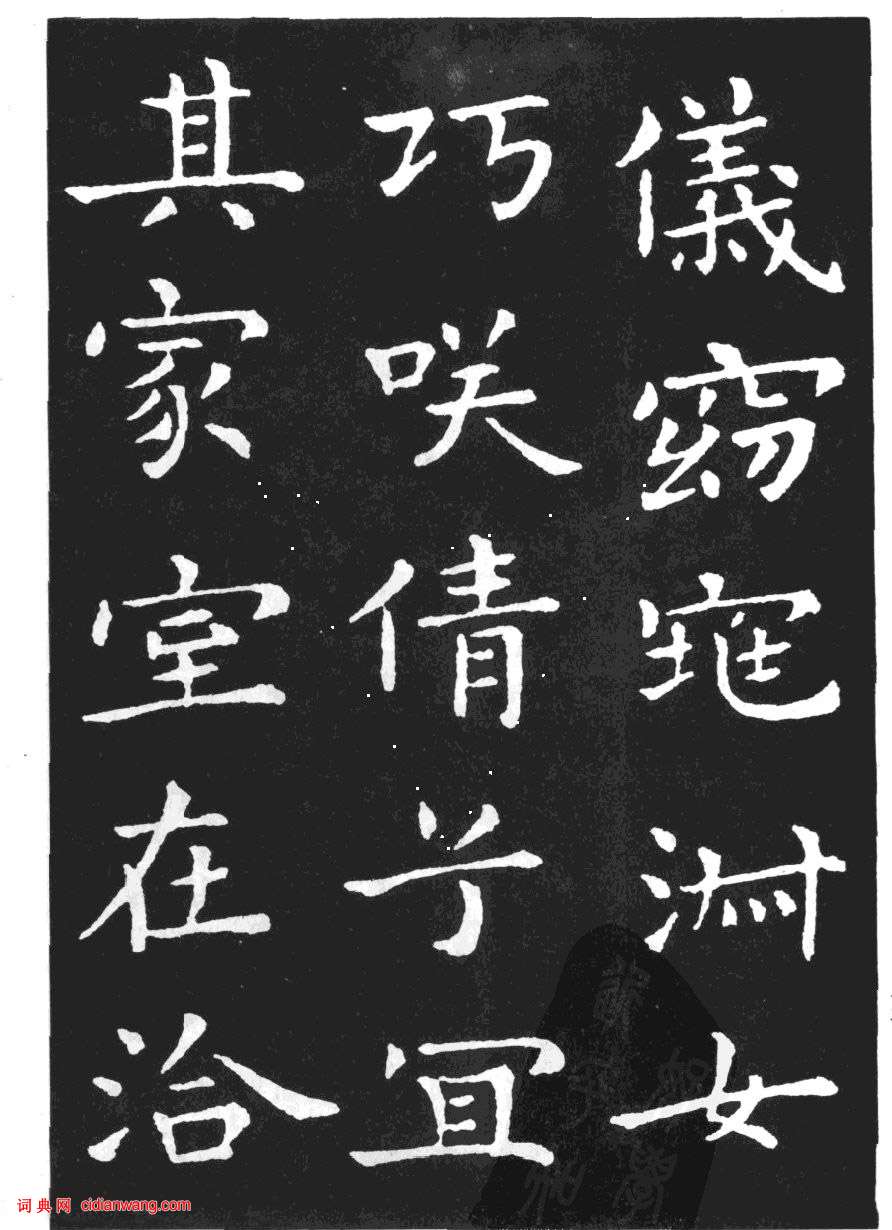 儀窈窕淑女
巧咲倩兮宜
其家室在洽
词典网 cidianwang.com